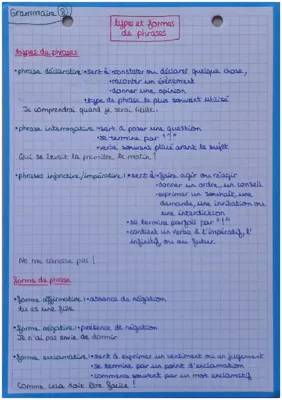 Grammaire
type et formes
de phrases
types de phrases
• phrase déclarative: • sert à constater ou déclarer quelque chose,
raconter un événement
• donner une opinion
• type de phrase le plus souvent utilisé
Je comprendrai quand je serai
• phrase interrogative: • sert à poser une question
• se termine par "?"
• verbe souvent placé avant le sujet
Qui se levait la première le matin?
• phrases injonctive/impérative: • sert à faire agir ou réagir
• donner un ordre, un conseil
• exprimer un souhait, une
demande, une invitation ou
une interdiction
• se termine parfois par "!"
• contient un verbe à l'impératif, l'
infinitif, ou au futur.
Ne me pas!
forme de phrase
• forme affirmative: • absence de négation
tu es une
• forme négative: • présence de négation
Je n'ai pas envie de dormir
• forme exclamative: • sert à exprimer un sentiment ou un jugement
• se termine par un point d'exclamation
• commence souvent par un mot exclamatif
Comme cela doit être facile!